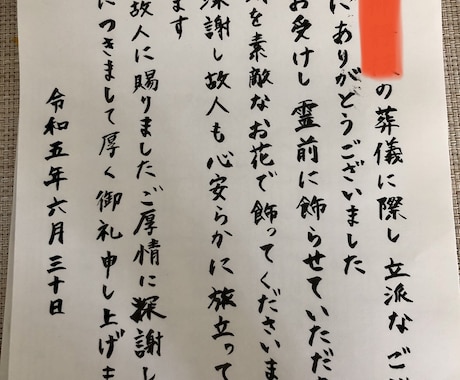 の葬儀に際し立派なご
にありがとうございました
お受けし霊前に飾らせていただ
を素敵なお花で飾ってくださいま
深謝し故人も心安らかに旅立って
ます
故人に賜りましたご厚情に深謝し
につきまして厚く御礼申し上げま
令和五年六月三十日